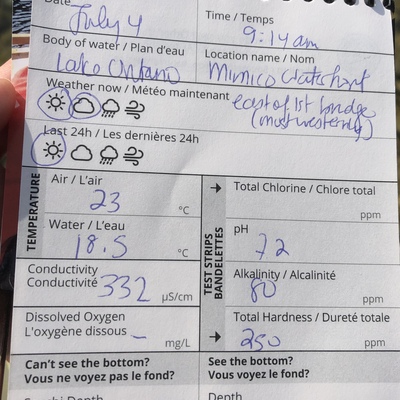 Date
July 4
Time / Temps
9:14am
Body of water / Plan d'eau
Lake Ontario
Location name / Nom
Mimico
Weather now / Météo maintenant
east of 1st bridge
(most westerly)
Last 24h / Les dernières 24h
TEMPERATURE
Air / L'air
23
°C
Water / L'eau
18.5
°C
Conductivity
Conductivité
332
µS/cm
Dissolved Oxygen
L'oxygène dissous
–
mg/L
TEST STRIPS
BANDELETTES
Total Chlorine / Chlore total
ppm
pH
7.2
Alkalinity / Alcalinité
80
ppm
Total Hardness / Dureté totale
250
ppm
Can't see the bottom?
Vous ne voyez pas le fond?
See the bottom?
Vous voyez le fond?
Secchi Depth
Depth